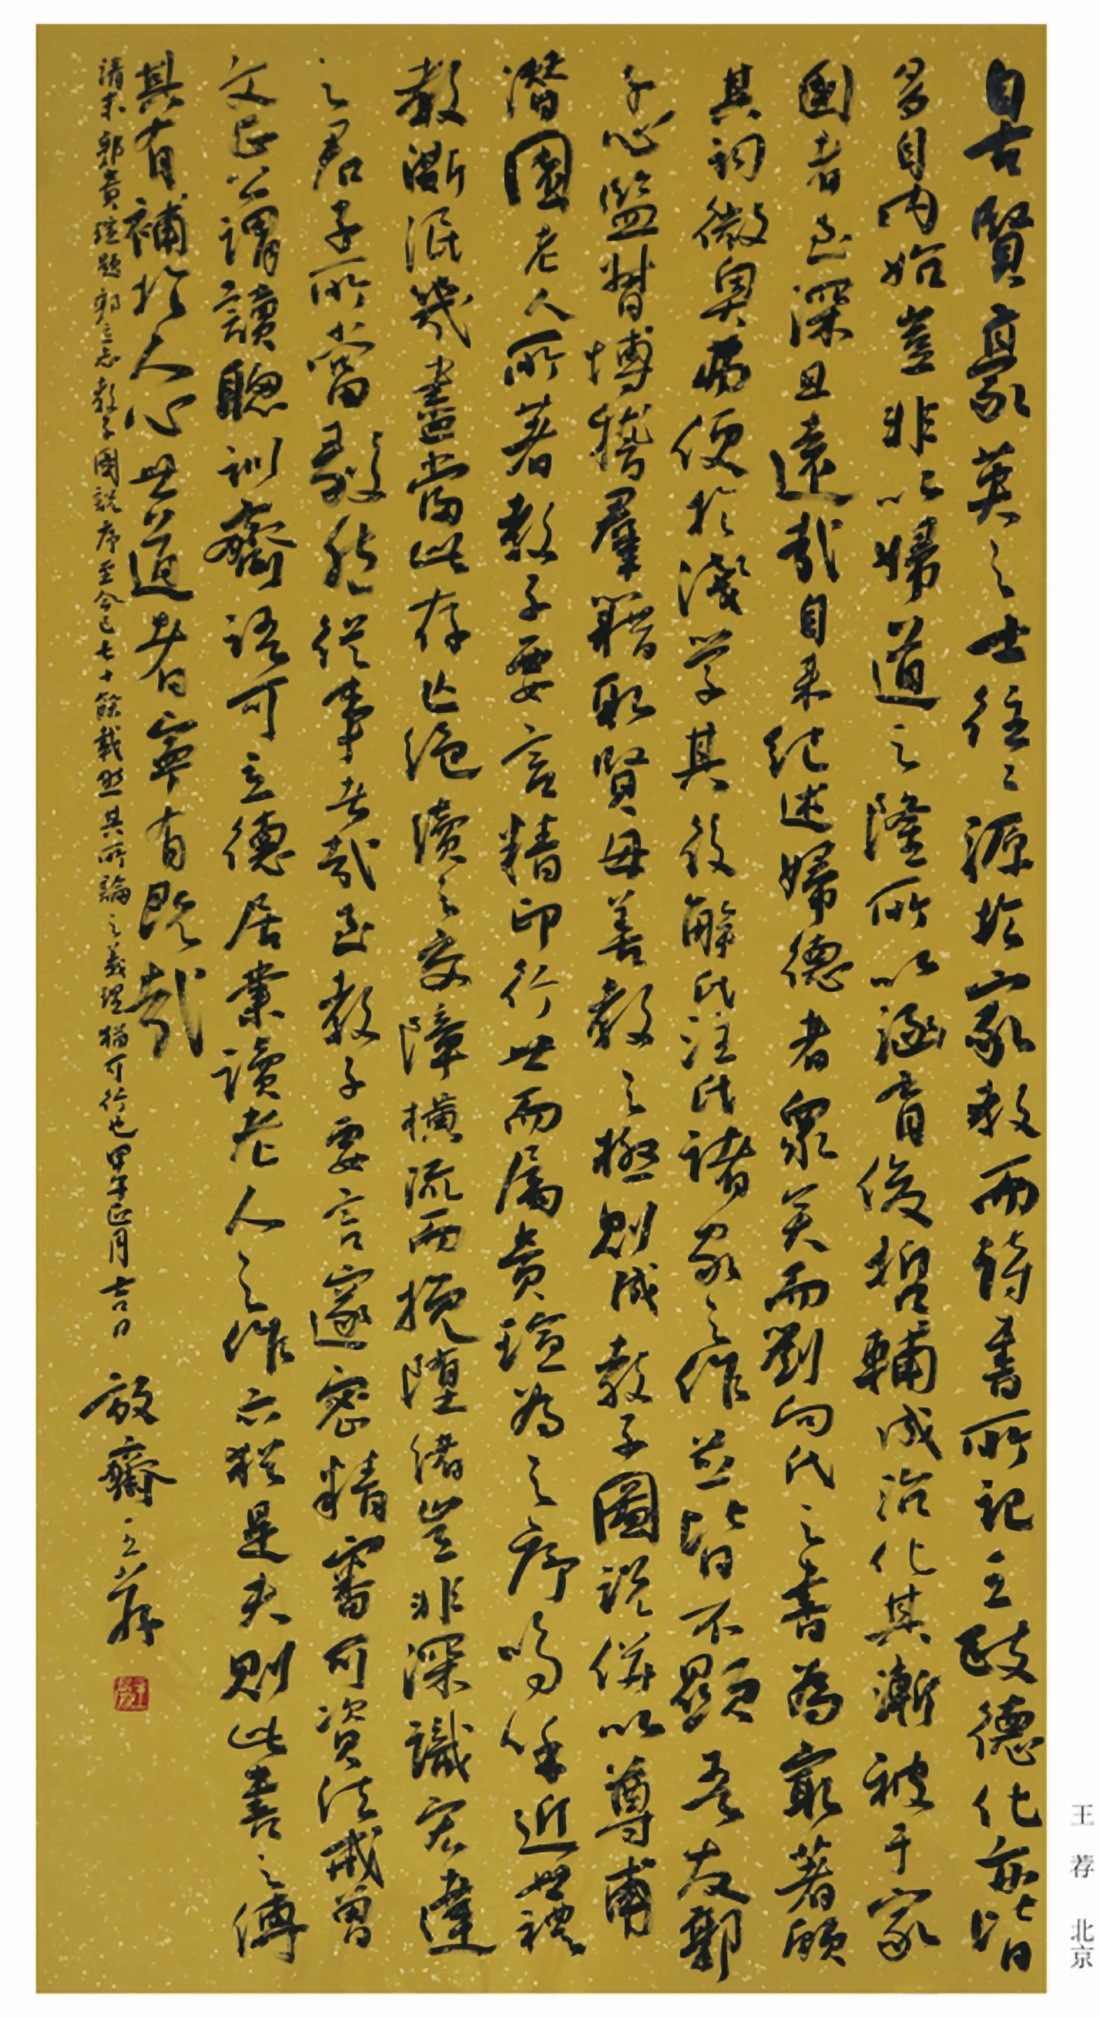 自古賢豪英之士往往源於家教而詩書所記王政德化亦皆
多自内始豈非以婦道之隆所以涵育後妃輔成治化其漸被于家
國者至深且遠哉自来紀述婦德者衆矣而劉向氏之書為最著頋
其詞微奥弗便於淺学其後解氏注氏諸家之作并皆不顯吾友郭
子心監督博稽羣籍取賢母善教之極則成教子圖説併以尊甫
潛園老人所著教子要言精印行世而屬賁瑄為之序嗚乎近世禮
教漸泯幾盡當此存亡絶續之交障横流而挽墮緒豈非深識宏達
之君子所當敦能從事者哉至教子要言邃密精審可資法戒曾
文正公謂讀聰訓齋語可立德居業讀老人之作亦猶是夫則此書之傳
其有補於人心世道者寧有既哉
清末郭賁瑄題郭立志教子圖説序至今已七十餘載然其所論之義理猶可行也甲午正月吉日
放齋王荐
王荐 北京